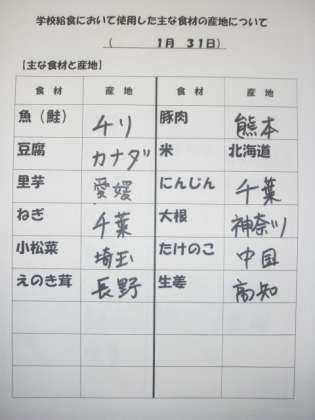 学校給食において使用した主な食材の産地について
( 1月 31日)
【主な食材と産地】
食 材 産 地 食 材 産 地
魚（鮭） チリ 豚肉 熊本
豆腐 カナダ 米 北海道
里芋 愛媛 にんじん 千葉
ねぎ 千葉 大根 神奈川
小松菜 埼玉 たけのこ 中国
えのき茸 長野 生姜 高知